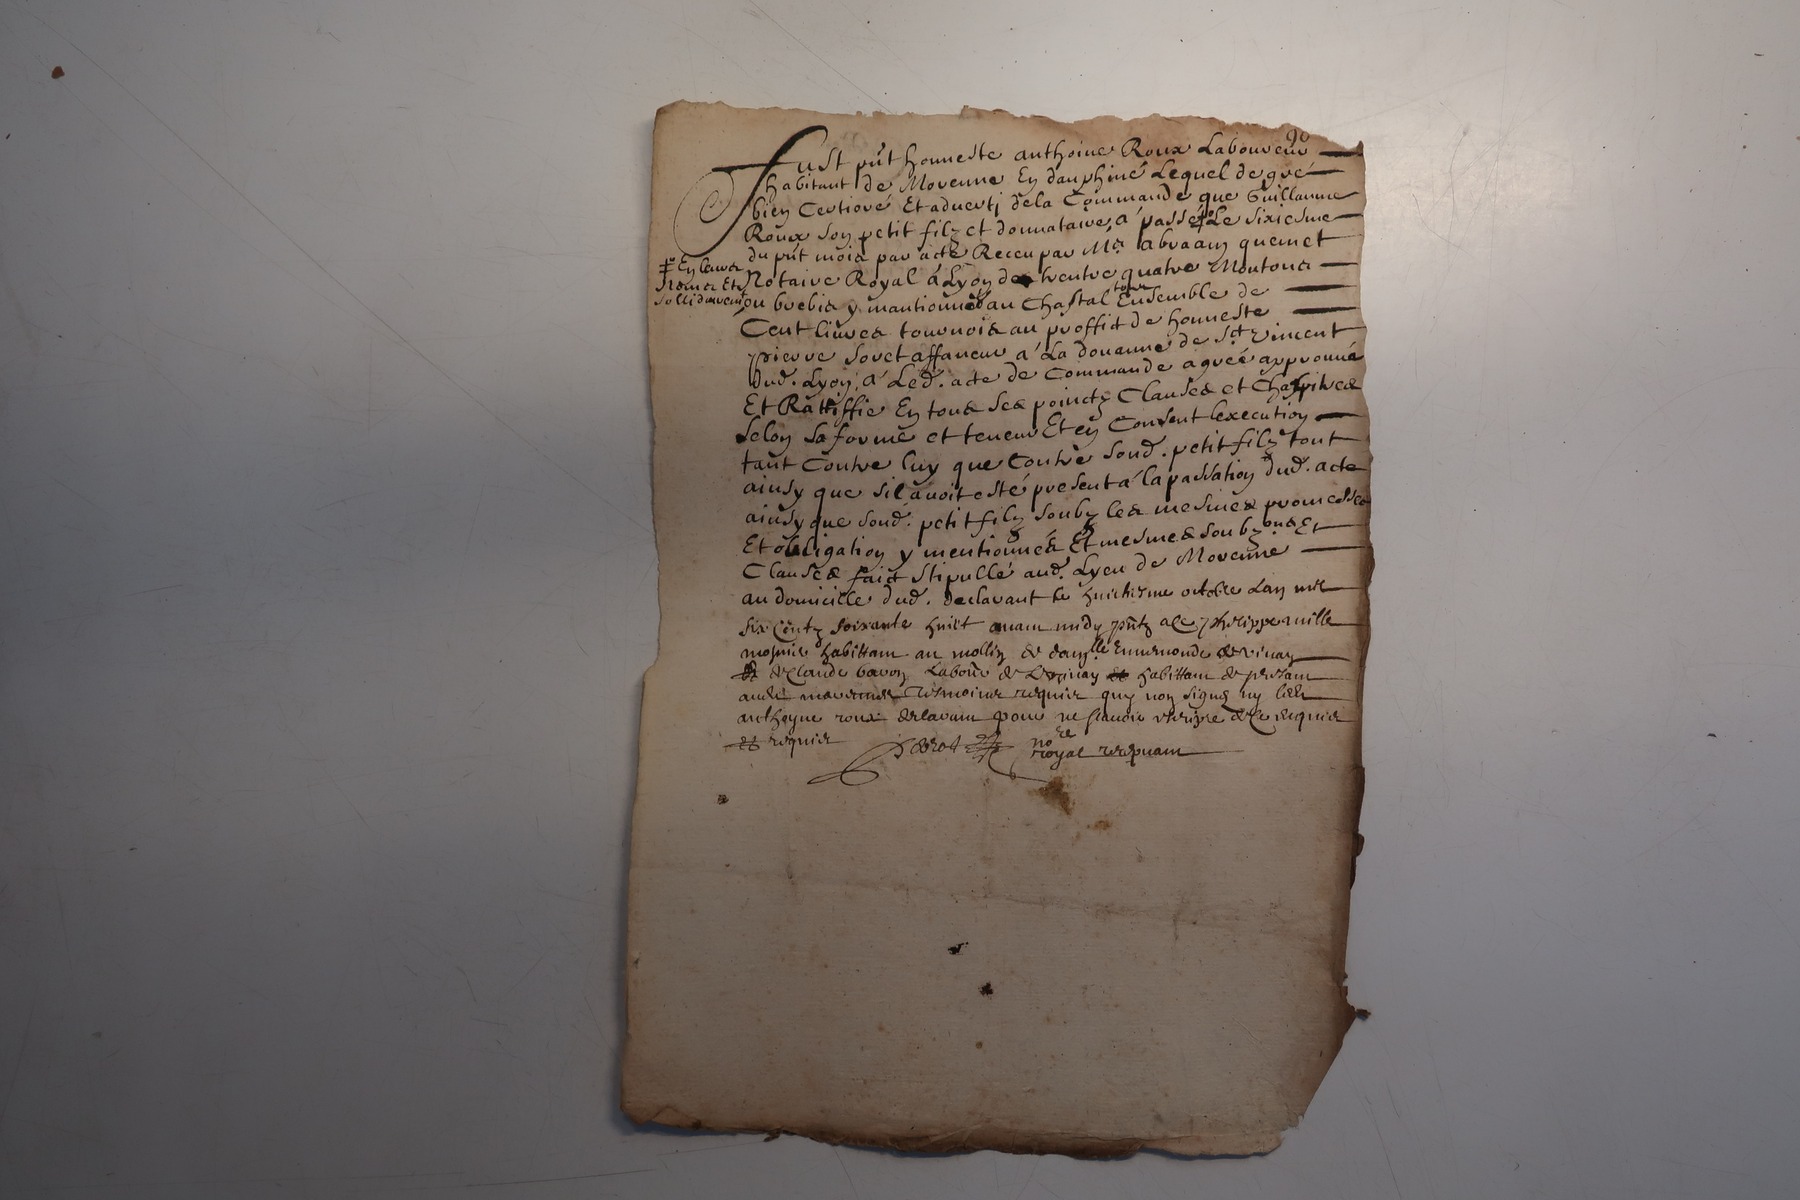 90
Fust pñt honneste anthoine Roux Laboureur
habitant de Morenne En dauphiné Lequel de gré
bien Certioré Et aduerti dela Commande que Guillaume
Roux son petit filz et donnataire, a passé Le sixiesme
du pñt mois par acte Receu par Me abraam quemet
Notaire Royal a Lyon de trentre quatre Moutons
En leurs
noms Et
sollidairemt
ou brebis y mantionnes au Chastal tour Ensemble de
Cent liures tournois au proffict de honneste
pierre Soret affaneur a La douanne de Sct Vincent
dud. Lyon, a Led. acte de Commande agreé approuué
Et Rattiffie En tous Ses poinctz Clauses et Chapitres
Selon Sa forme et teneur Et en Consent lexecution
tant Contre luy que Contre Sond. petit filz tout
ainsy que sil auoit esté present a la passation dud. acte
ainsy que Sond. petit filz soubz les mesmes promesses
Et obligation y mentionnés Et mesmes soubzons Et
Clauses faict Stipullé aud. Lyeu de Morenne
au domicille dud. declarant le huictiesme octobre Lan mil
six Centz soixante huict auant midy pñtz a Ce phelippe mille
mosnier habittant au mollin de damlle Ennemonde de vinay
de Claude baron Labour de habittant de
tesmoins requis quy non signe ny led.
anthoyne roux declarant pour ne scauoir escripre de Ce enquis
et requis
nore
royal